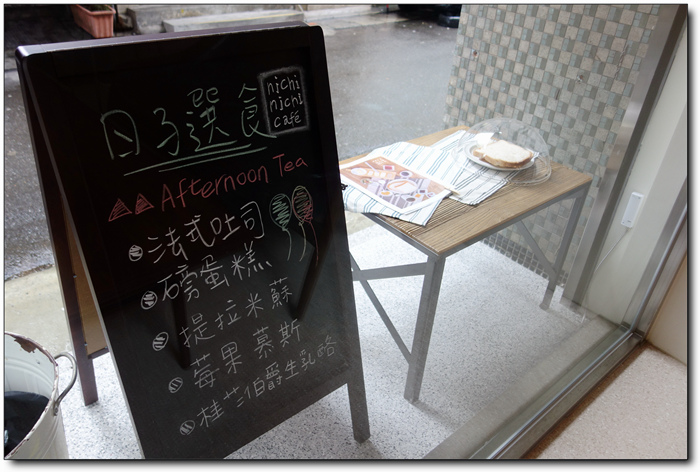 日子選食
nichi
nichi
café
Afternoon Tea
法式吐司
磅蛋糕
提拉米蘇
莓果慕斯
桂花伯爵生乳酪